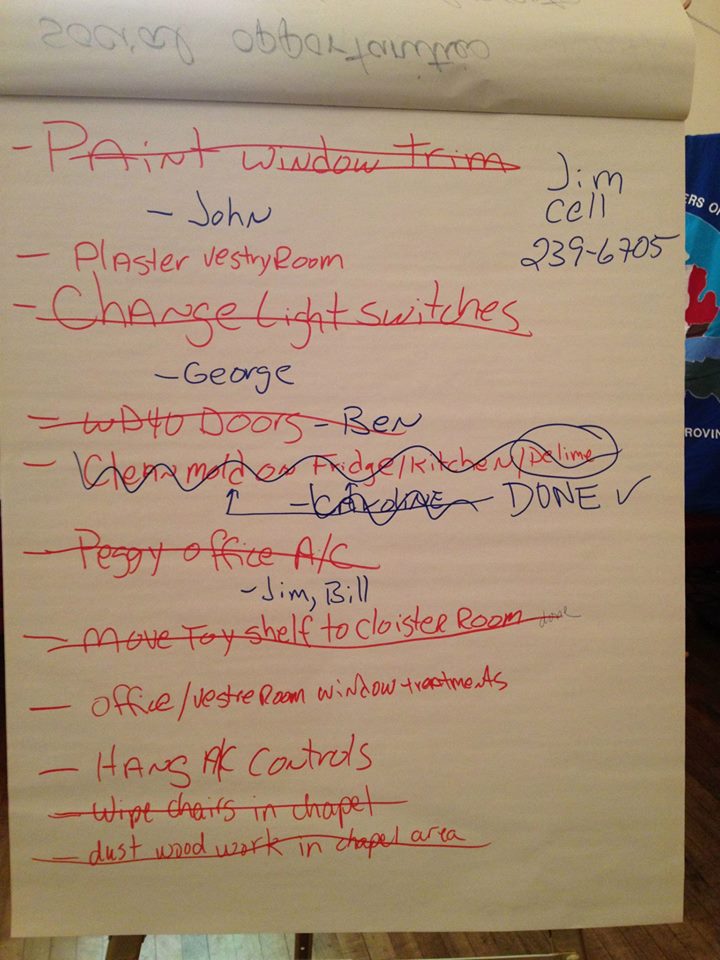 social opportunities
- Paint window trim
Jim
cell
239-6705
- John
- Plaster vestry Room
- Change Light switches
- George
- WD40 Doors - Ben
- Clean mold on Fridge/Kitchen/Delime
- Caroline - DONE ✓
- Peggy office A/C
- Jim, Bill
- Move Toy shelf to Cloister Room done
- office/vestre Room window treatments
- HANG A/C Controls
- Wipe chairs in chapel
- dust wood work in chapel area
ERS OF
ROVIN